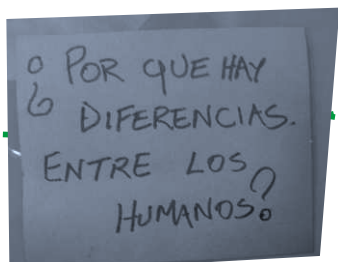 ¿ POR QUE HAY
DIFERENCIAS.
ENTRE LOS
HUMANOS?